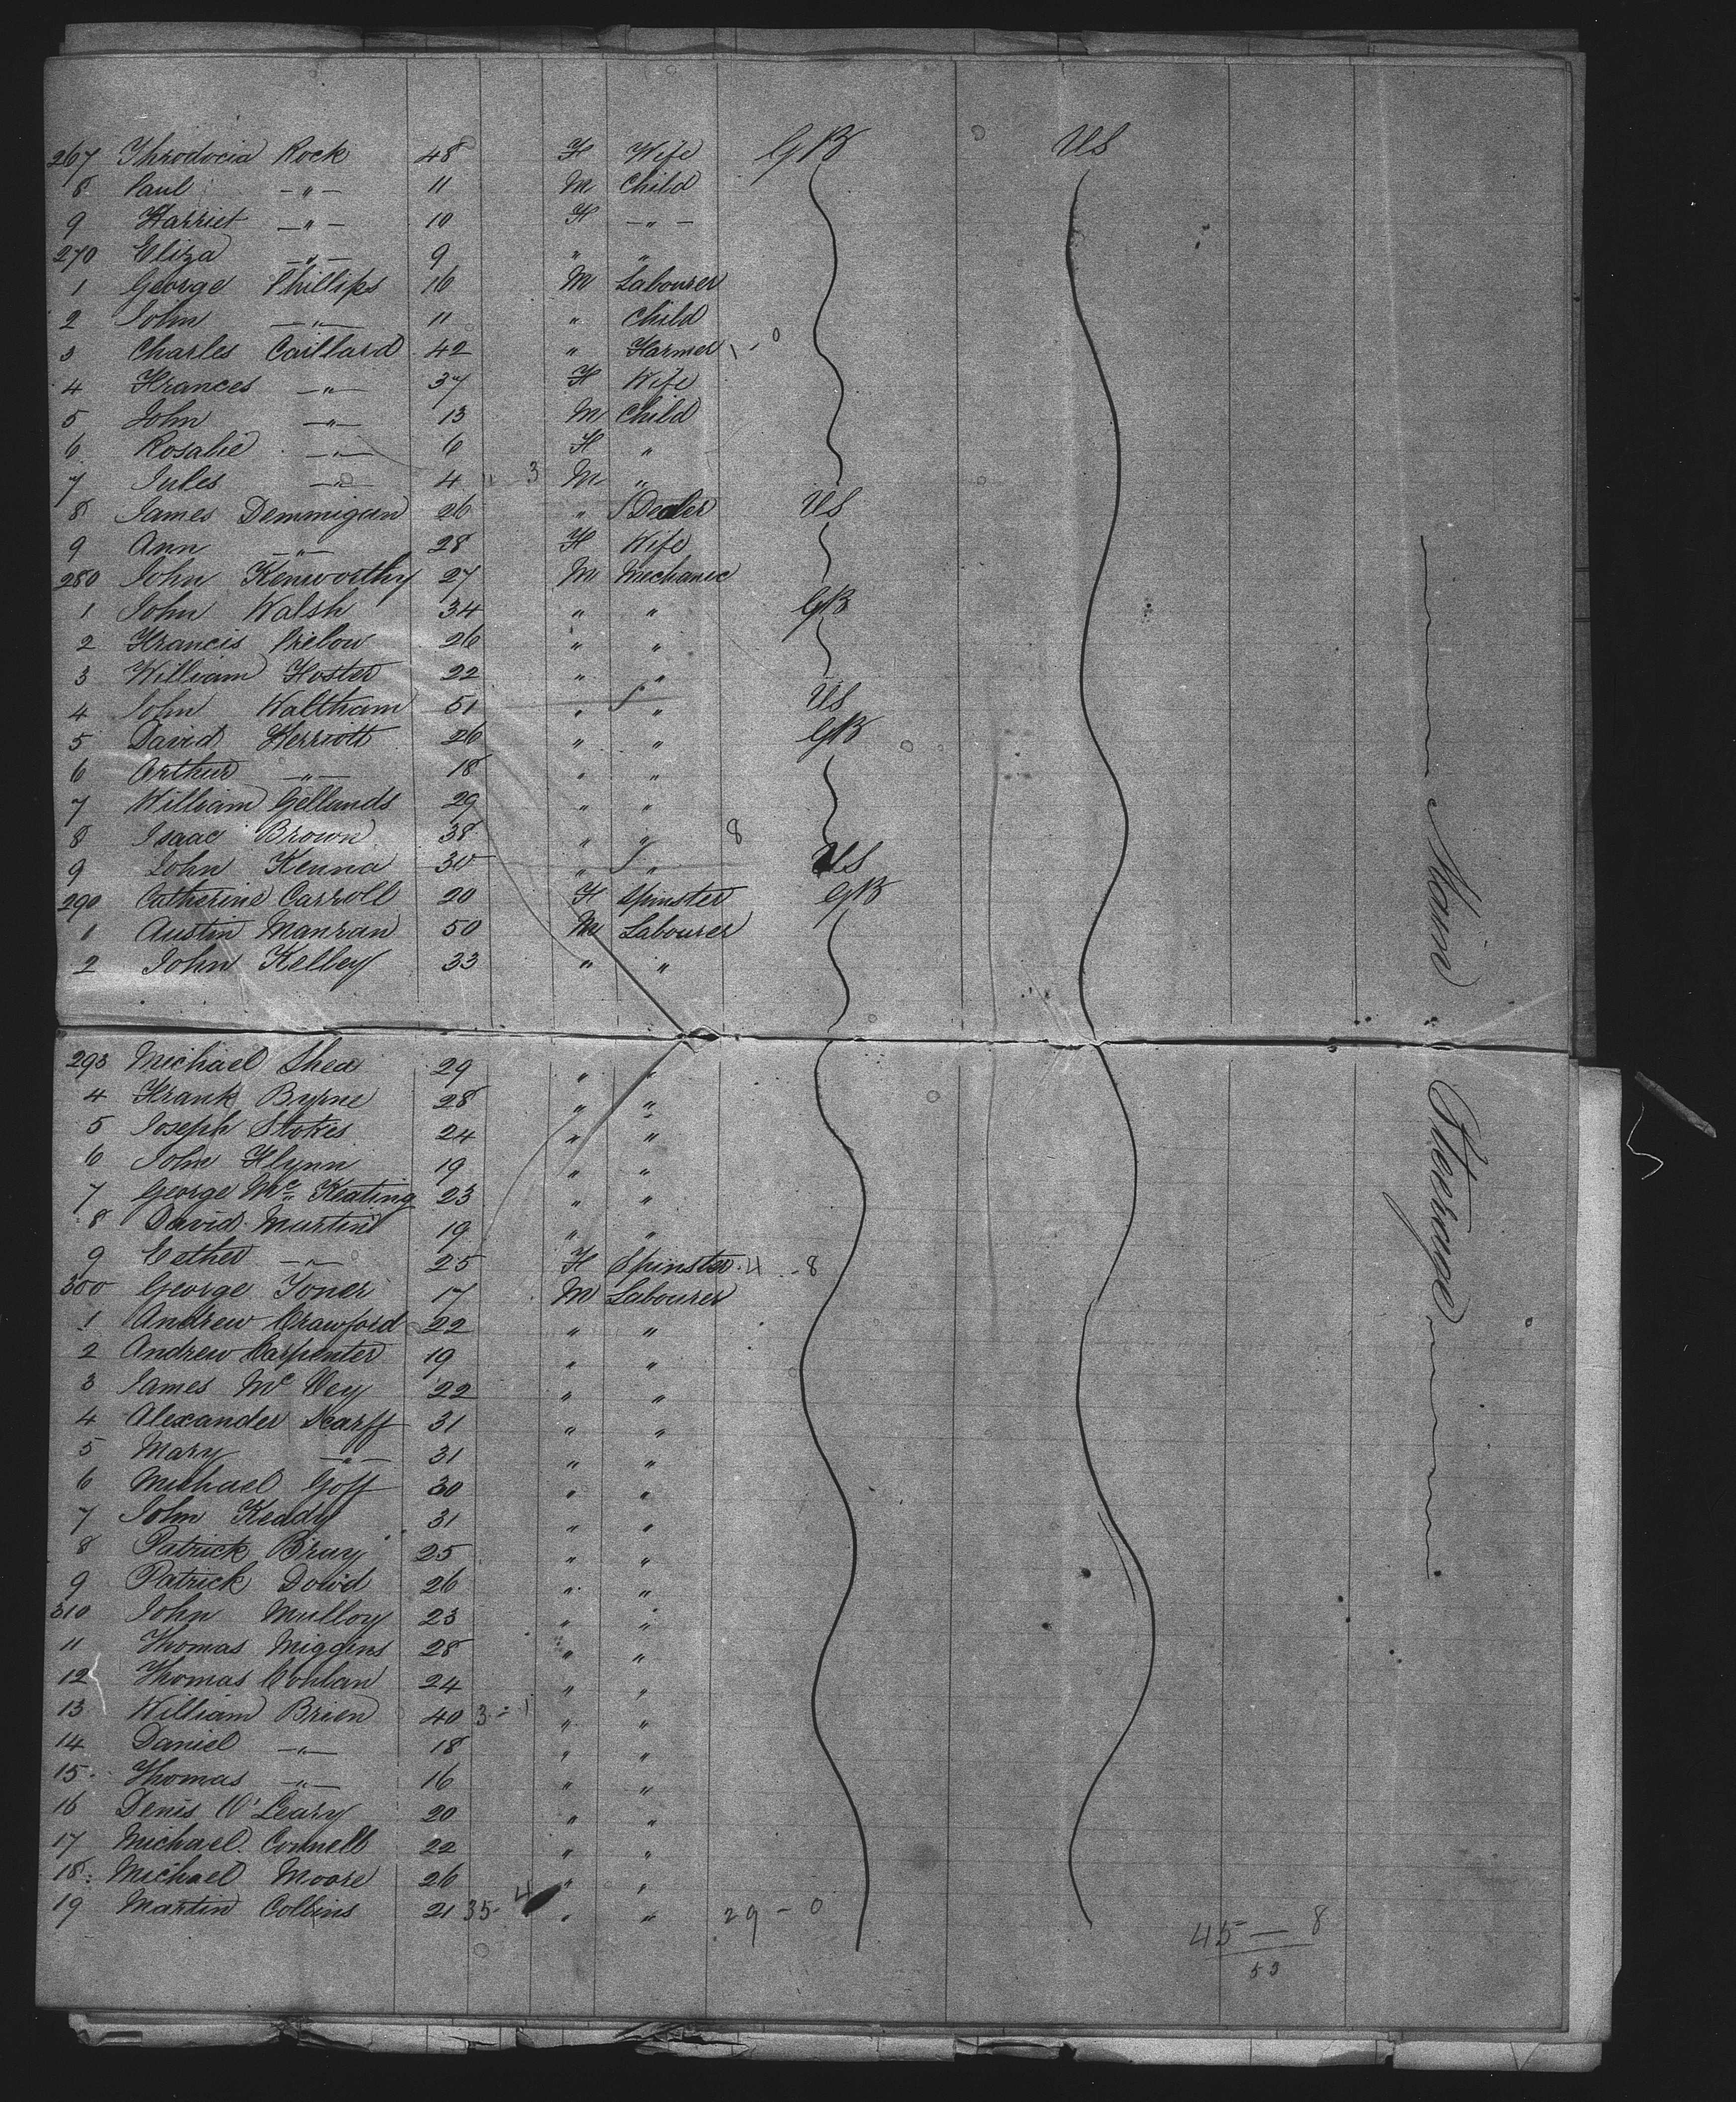 267 Throdocia Rock 48 F Wife GB US
8 Paul -"- 11 M Child
9 Harriet -"- 10 F -"-
270 Eliza -"- 9 " "
1 George Phillips 16 M Labourer
2 John -"- 11 " Child
3 Charles Caillard 42 " Farmer 1 - 0
4 Frances -"- 37 F Wife
5 John -"- 13 M Child
6 Rosalie -"- 6 F "
7 Jules -"- 4 3 M "
8 James Demmigan 26 " Dealer US
9 Ann -"- 28 F Wife
280 John Kenworthy 27 M Mechanic
1 John Walsh 34 " " GB
2 Francis 26 " "
3 William Foster 22 " "
4 John Waltham 51 " " US
5 David Herriott 26 " " GB
6 Arthur -"- 18 " "
7 William Gellands 29 " "
8 Isaac Brown 38 " " 8
9 John Kenna 30 " " US
290 Catherine Carroll 20 F Spinster GB
1 Austin Manran 50 M Labourer
2 John Kelley 33 " "
Main Steerage
293 Michael Shea 29 " "
4 Frank Byrne 28 " "
5 Joseph Stokes 24 " "
6 John Flynn 19 " "
7 George Mc Keating 23 " "
8 David Martin 19 " "
9 Esther -"- 25 F Spinster 4 - 8
300 George Toner 17 M Labourer
1 Andrew Crawford 22 " "
2 Andrew Carpenter 19 " "
3 James Mc Vey 22 " "
4 Alexander Scarff 31 " "
5 Mary -"- 31 " "
6 Michael Goff 30 " "
7 John Keady 31 " "
8 Patrick Bray 25 " "
9 Patrick Dowd 26 " "
310 John Mulloy 23 " "
11 Thomas Miggins 28 " "
12 Thomas Conlan 24 " "
13 William Brien 40 3 - 1 " "
14 Daniel -"- 18 " "
15 Thomas -"- 16 " "
16 Denis O'Leary 20 " "
17 Michael Connell 22 " "
18 Michael Moore 26 " "
19 Martin Collins 21 35 - 4 " " 29 - 0
45 - 8
53